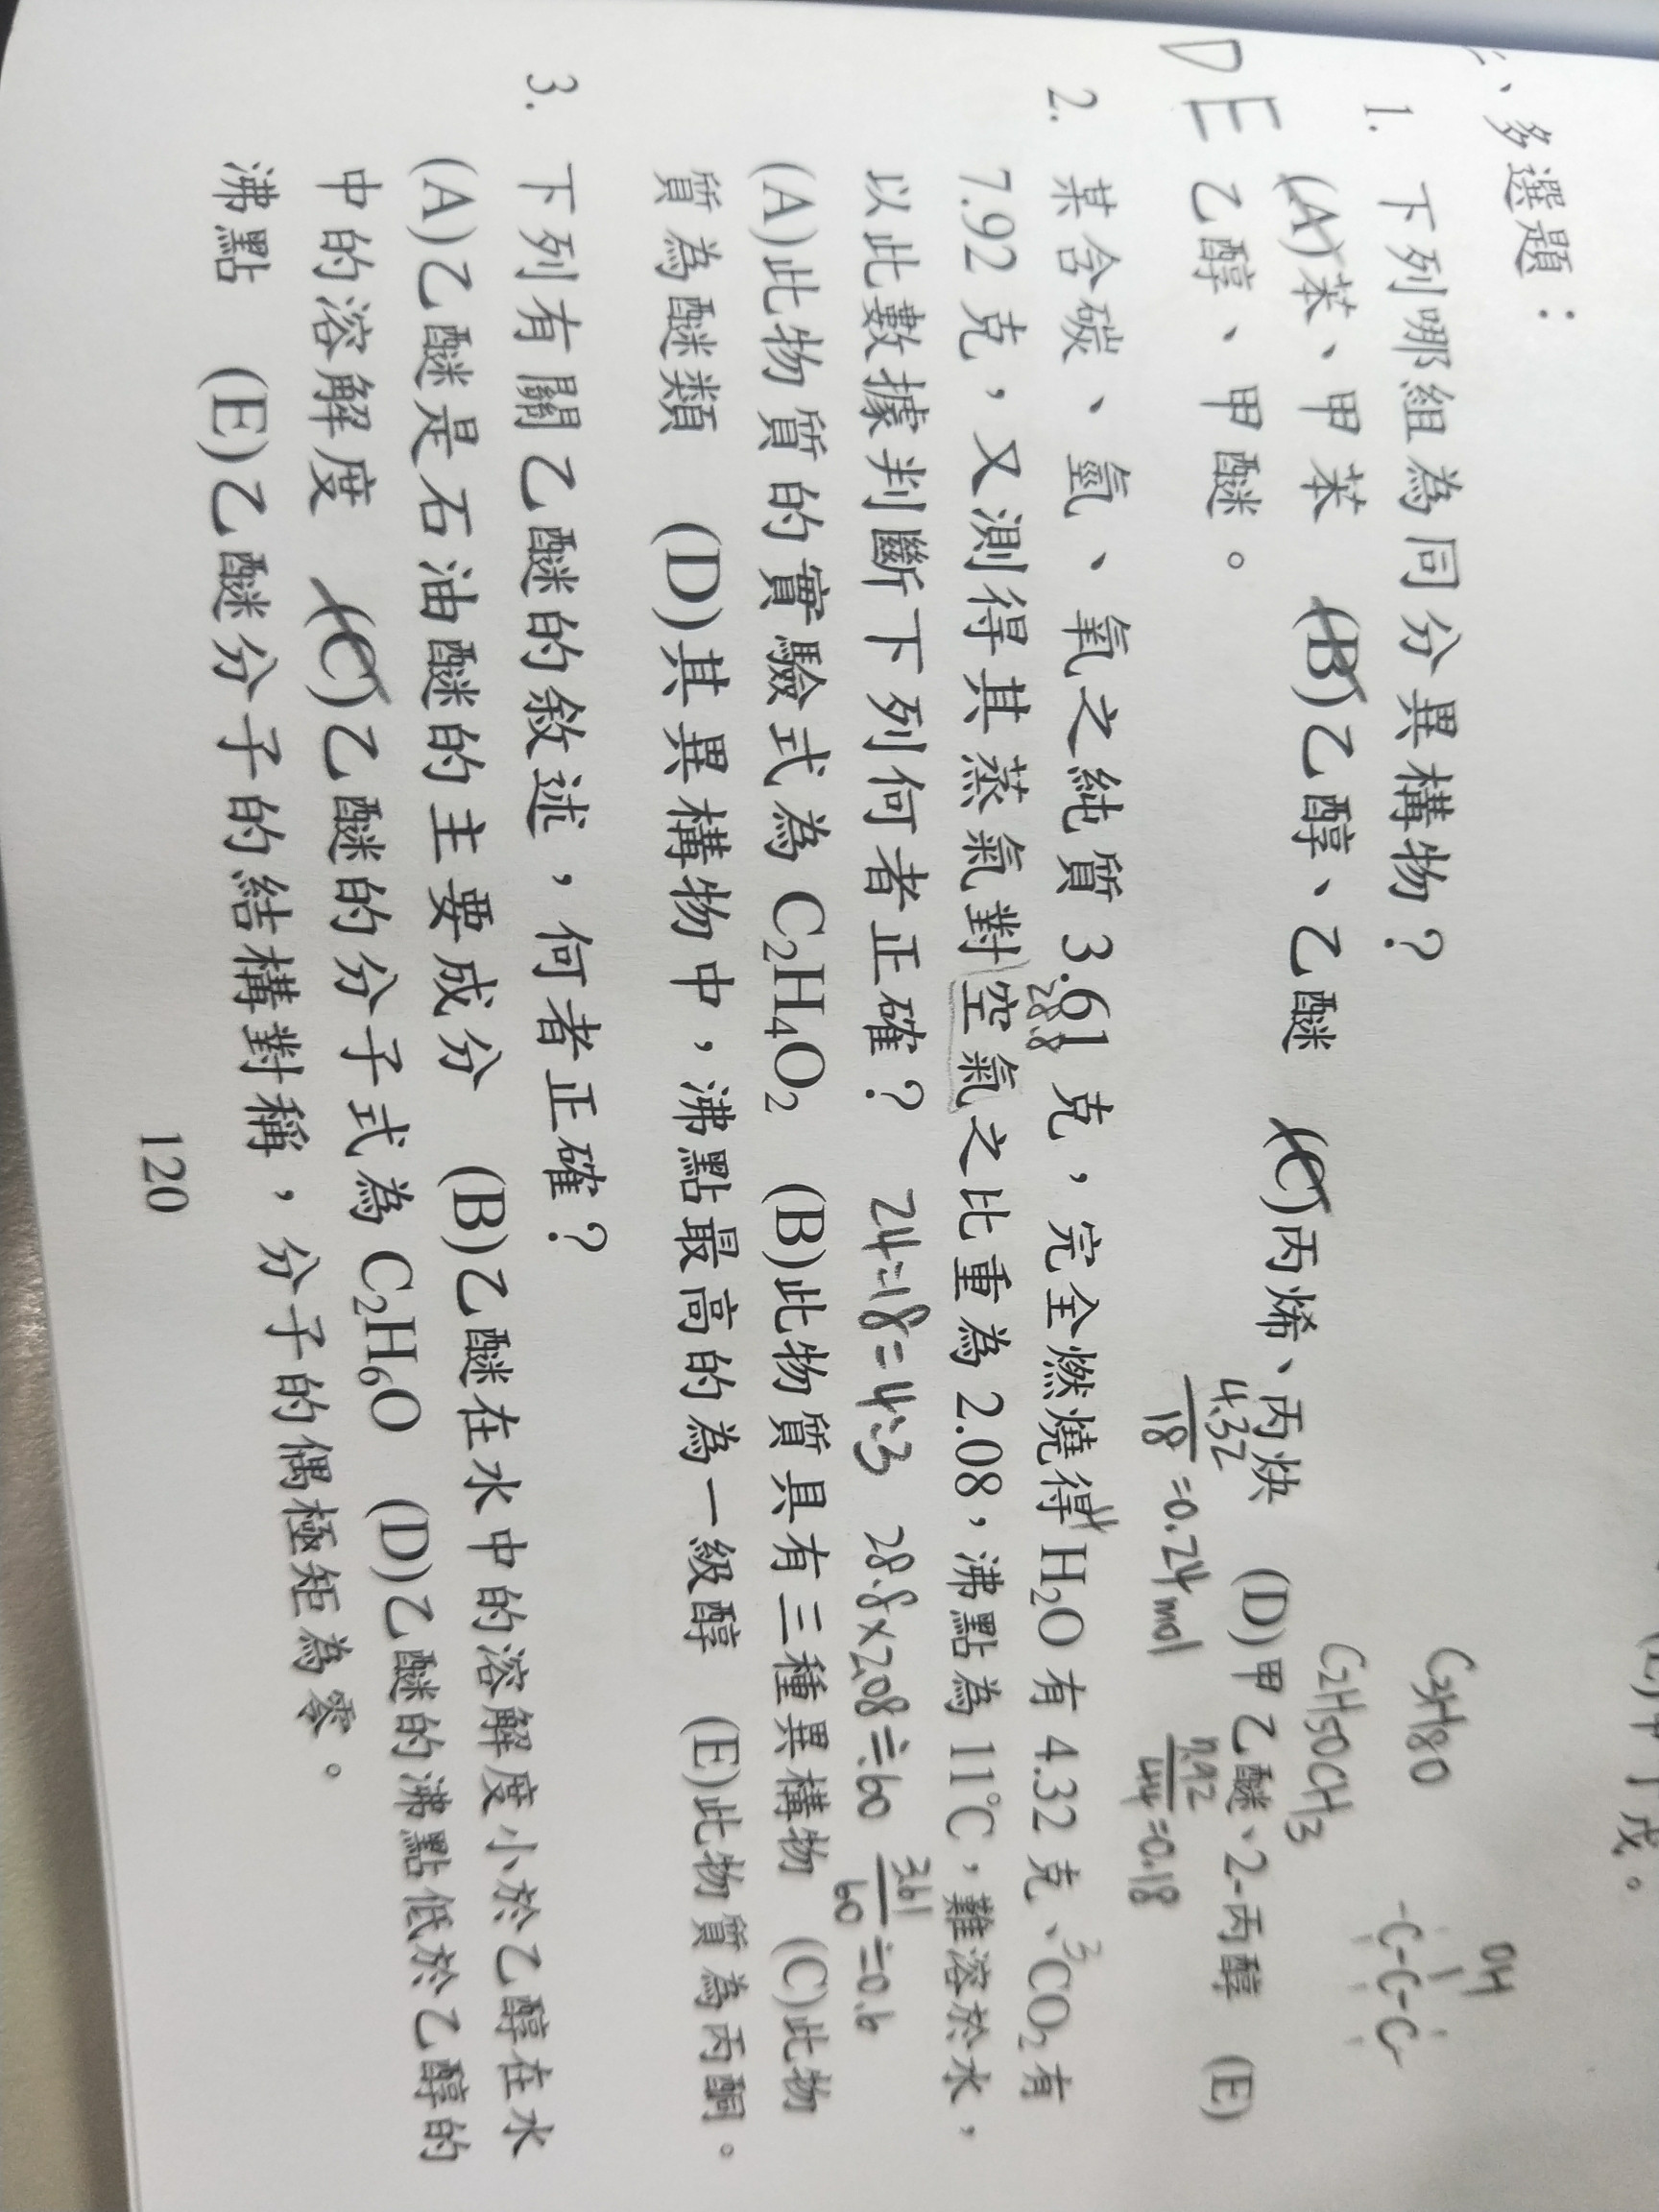 、多選題：
1. 下列哪組為同分異構物？
C3H8O
OH
-C-C-C-
(A)苯、甲苯 (B)乙醇、乙醚 (C)丙烯、丙炔 (D)甲乙醚、2-丙醇 (E)
C2H5OCH3
DE 乙醇、甲醚。
4.32/18=0.24mol 7.92/44=0.18
2. 某含碳、氫、氧之純質 3.61 克，完全燃燒得 H₂O 有 4.32 克、CO₂ 有
28.8
7.92 克，又測得其蒸氣對空氣之比重為 2.08，沸點為 11℃，難溶於水，
以此數據判斷下列何者正確？ 24:18=4:3 28.8×2.08≒60 3.61/60≒0.6
(A)此物質的實驗式為 C₂H₄O₂ (B)此物質具有三種異構物 (C)此物
質為醚類 (D)其異構物中，沸點最高的為一級醇 (E)此物質為丙酮。
3. 下列有關乙醚的敘述，何者正確？
(A)乙醚是石油醚的主要成分 (B)乙醚在水中的溶解度小於乙醇在水
中的溶解度 (C)乙醚的分子式為 C₂H₆O (D)乙醚的沸點低於乙醇的
沸點 (E)乙醚分子的結構對稱，分子的偶極矩為零。
120